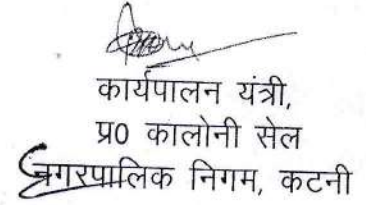 कार्यपालन यंत्री,
प्र0 कालोनी सेल
नगरपालिक निगम, कटनी